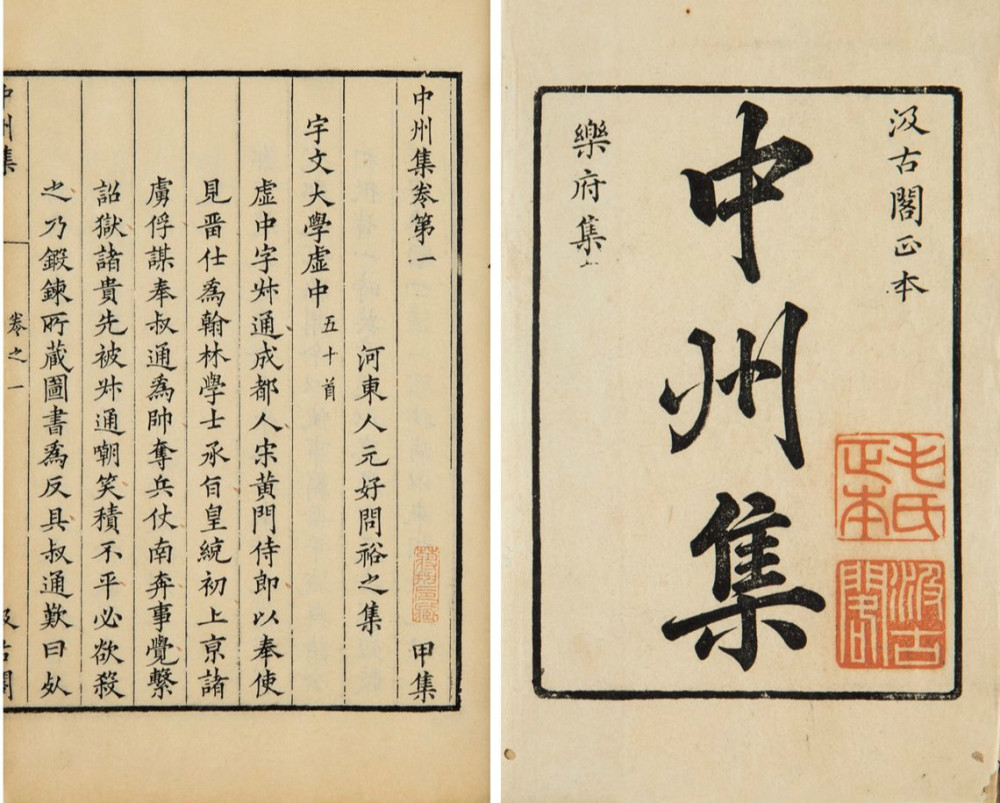 汲古閣正本
中州集
樂府集
毛氏正本
汲古閣
中州集卷第一 甲集
河東人元好問裕之集
宇文大學虛中五十首
虛中字叔通成都人宋黃門侍郎以奉使
見畱仕爲翰林學士承旨皇統初上亰諸
虜俘謀奉叔通爲帥奪兵仗南奔事覺繫
詔獄諸貴先被叔通嘲笑積不平必欲殺
之乃鍛鍊所藏圖書爲反具叔通歎曰死
中州集 卷之一 汲古閣